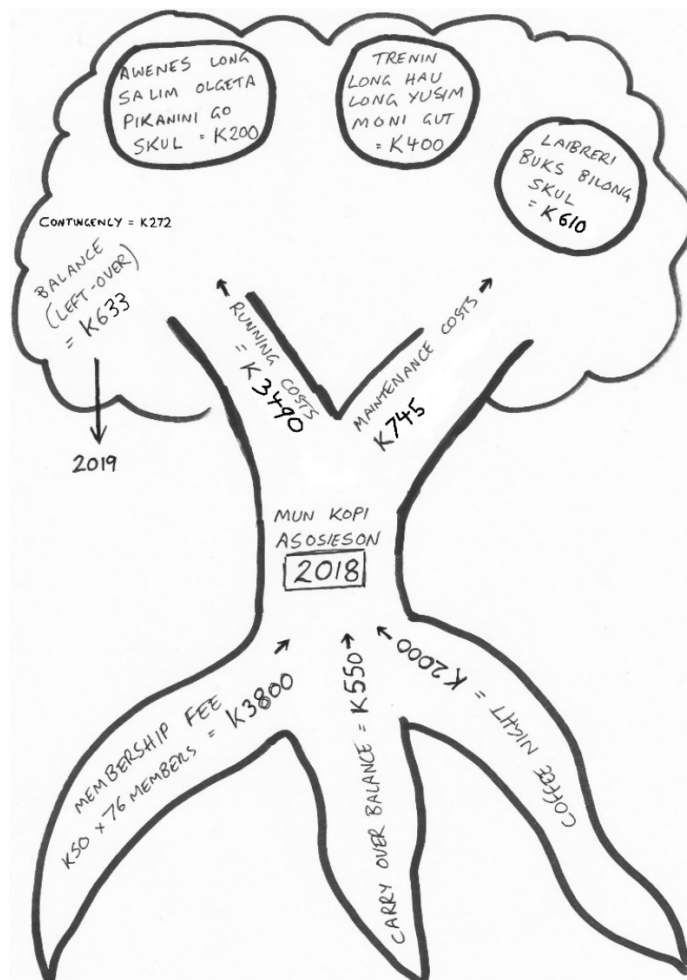 AWENES LONG
SALIM OLGETA
PIKANINI GO
SKUL = K200
TRENIN
LONG HAU
LONG YUSIM
MONI GUT
= K400
LAIBRERI
BUKS BILONG
SKUL
= K610
CONTINGENCY = K272
BALANCE
(LEFT-OVER)
= K633
2019
RUNNING COSTS
= K3490
MAINTENANCE COSTS
K745
MUN KOPI
ASOSIESON
2018
MEMBERSHIP FEE
K50 x 76 MEMBERS = K3800
CARRY OVER BALANCE = K550
COFFEE NIGHT = K2000